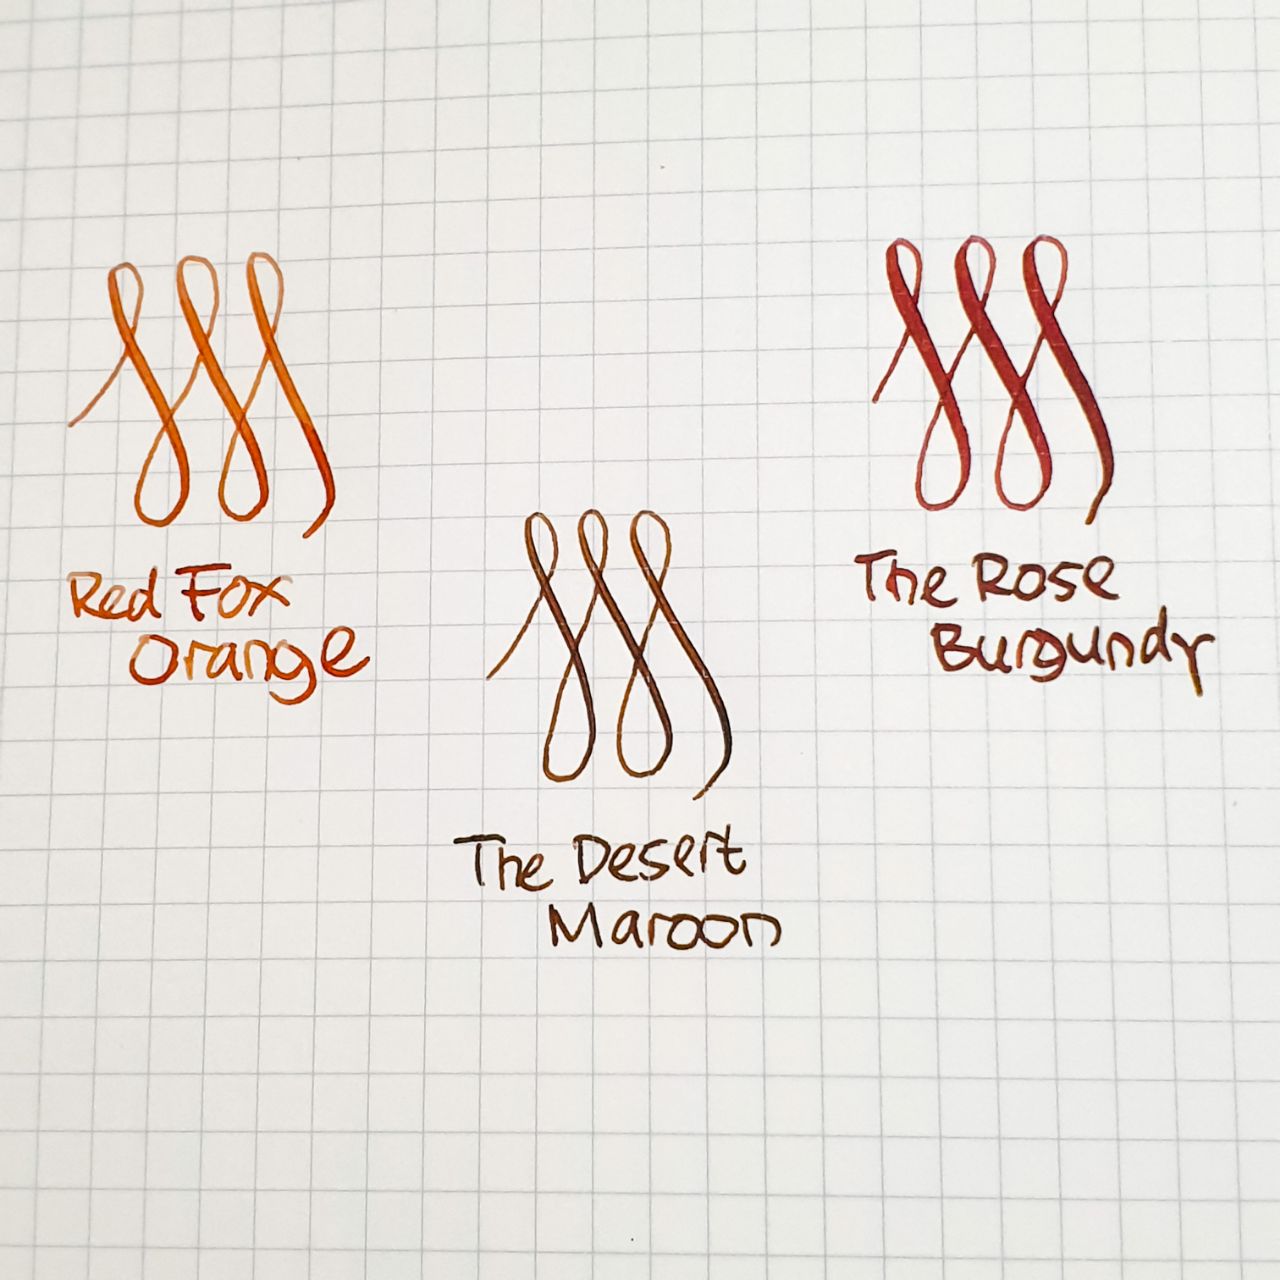 Red Fox
Orange
The Desert
Maroon
The Rose
Burgundy